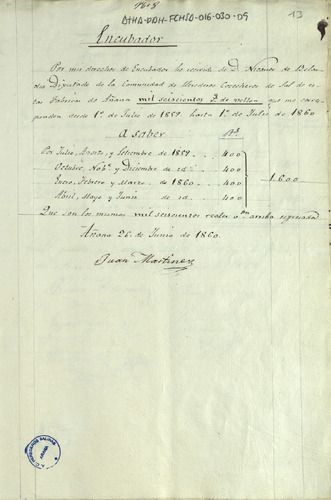 1618
ATHA-DDH-FCHSO-016-030-09
13
Encubador
Por mis derechos de Encubador he recibido de D. Nicanor de Bola-
Diputado de la Comunidad de Herederos Cosecheros de Sal de es-
tas Fabricas de Añana mil seiscientos r.s de vellon que me corres-
ponden desde 1º de Julio de 1859 hasta 1º de Julio de 1860
A saber
Por Julio, Agosto, y Setiembre de 1859 . . 400
Octubre, Nob.e y Diciembre de id. . . 400
Enero, Febrero y Marzo de 1860 . . 400
Abril, Mayo y Junio de id. . . 400
1.600
Que son los mismos mil seiscientos reales v.on arriba espresados
Añana 26 de Junio de 1860.
Juan Martinez